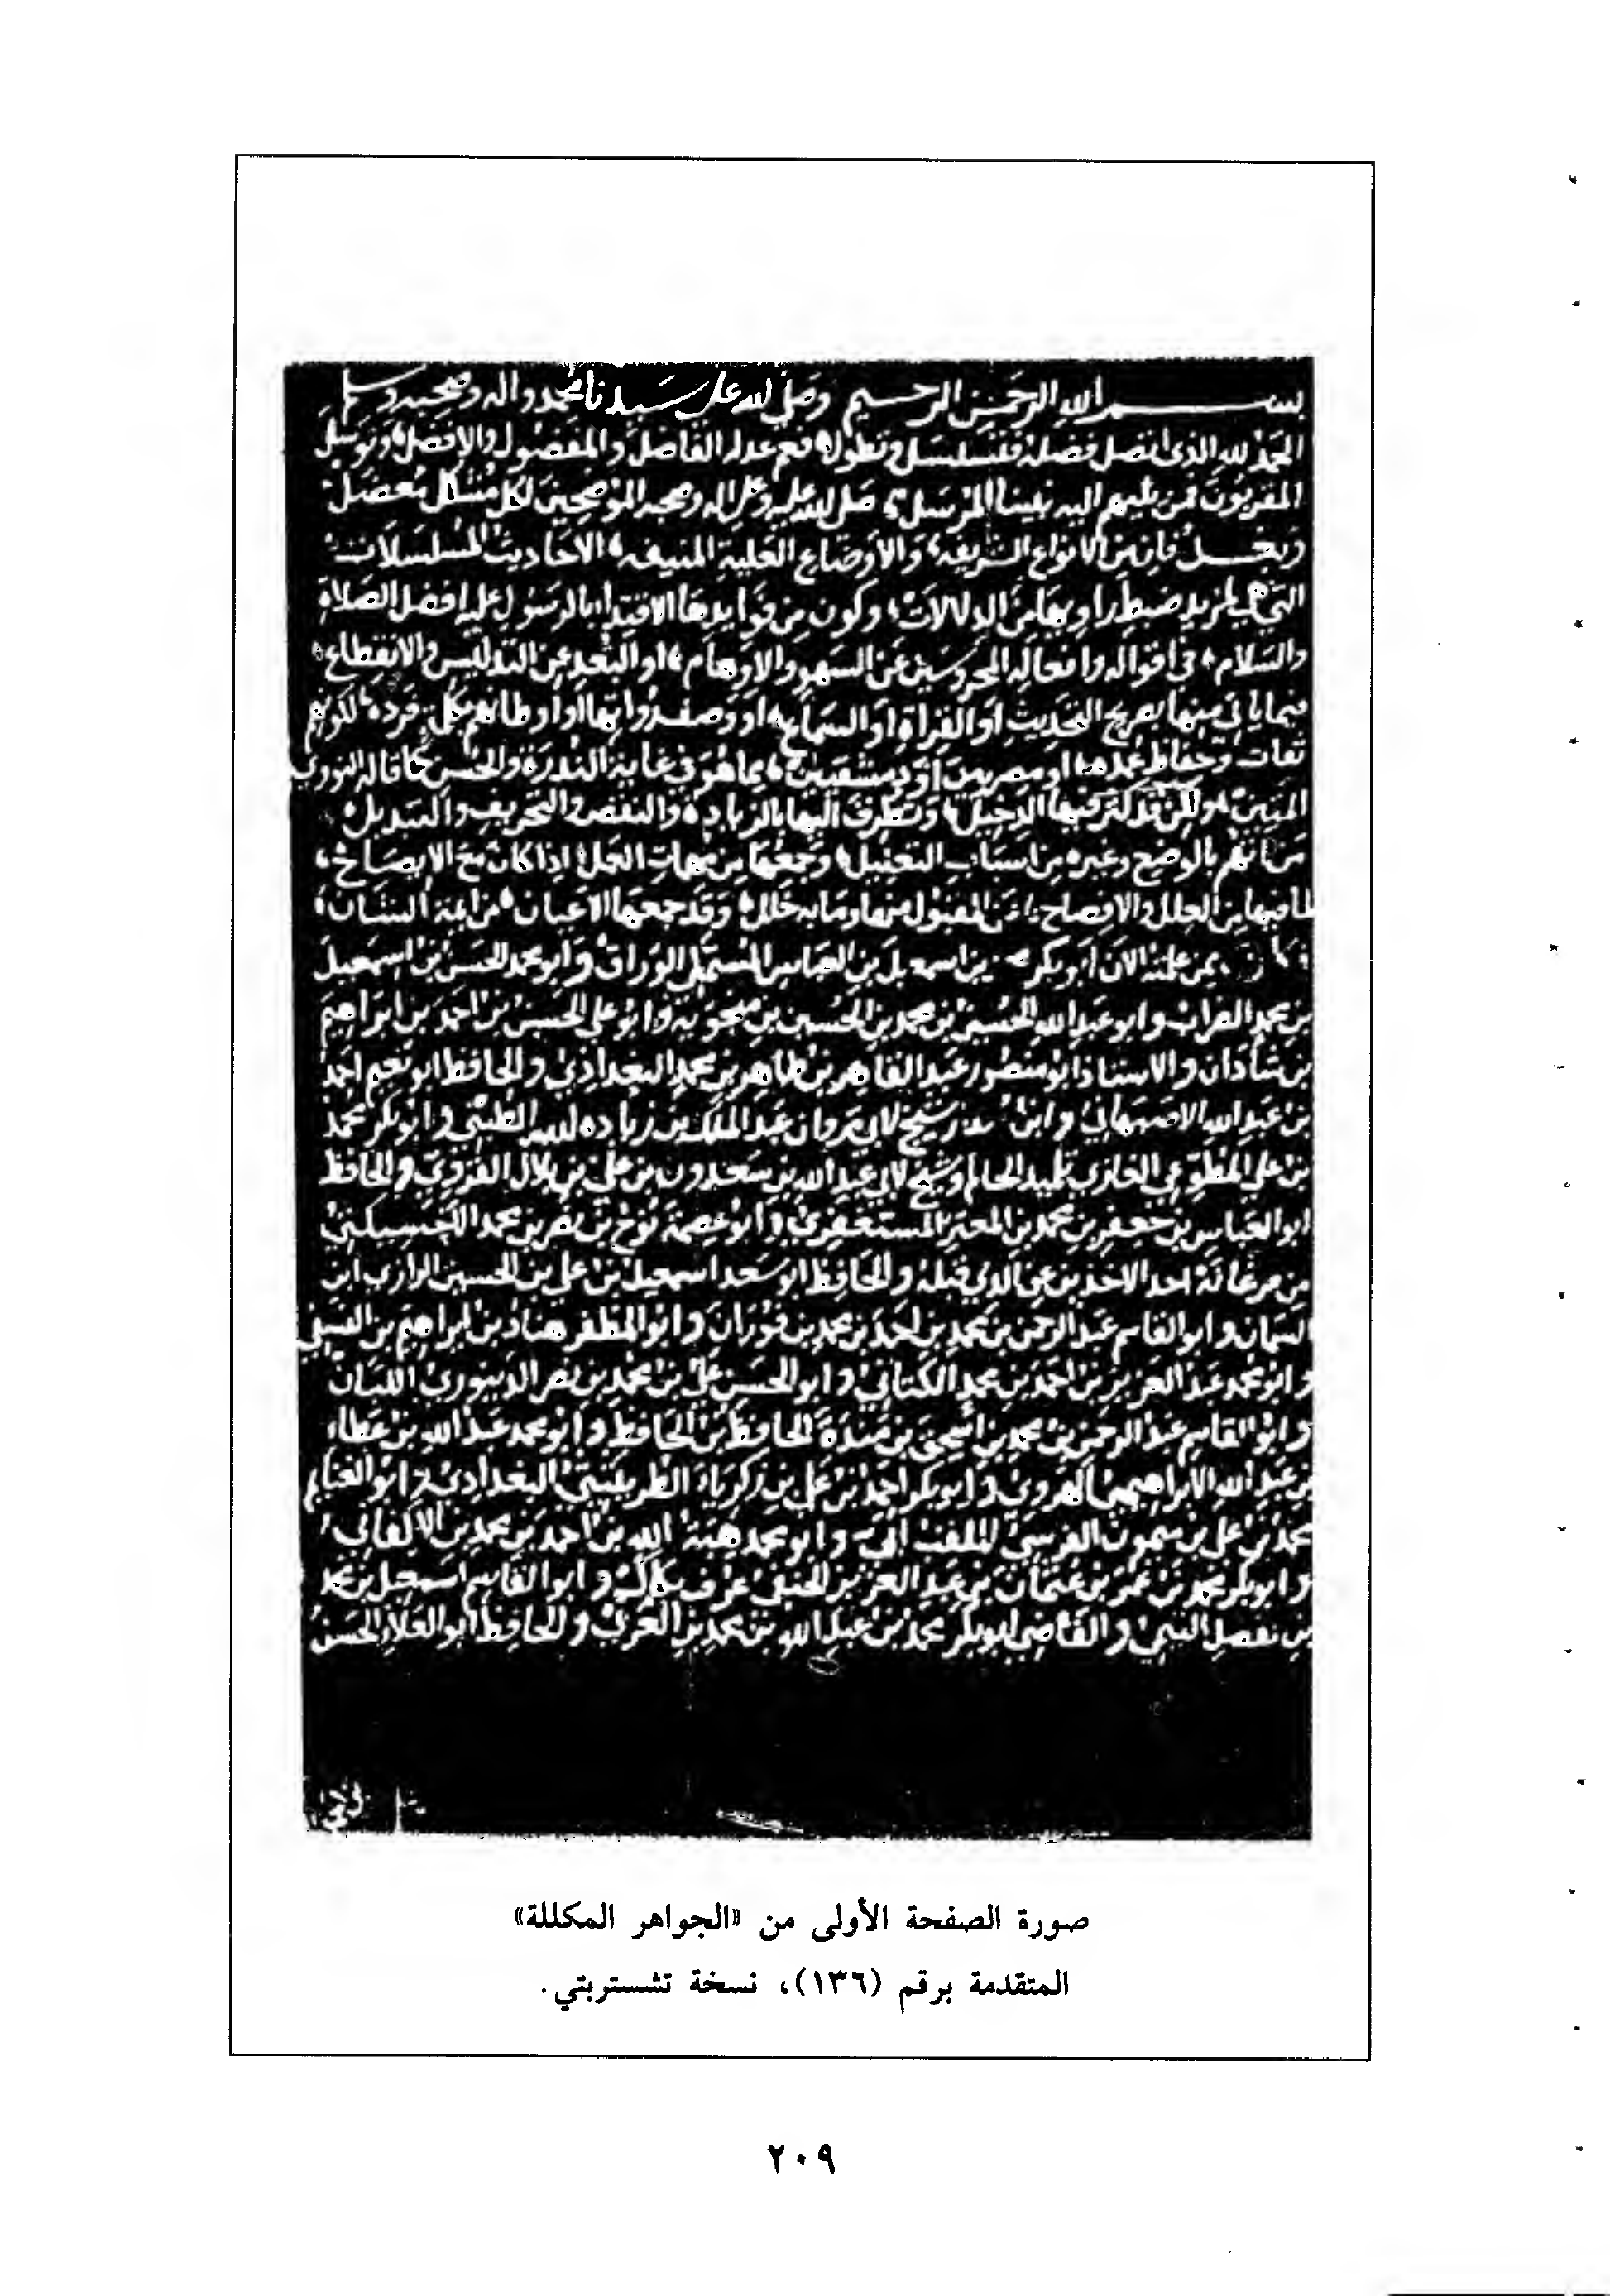 بسم الله الرحمن الرحيم وصلى الله على سيدنا محمد واله وصحبه وسلم
الحمد لله الذي اتصل فضله فتسلسل وتطول فعم عدله الفاضل والمفضول والافضل وتوسل
المقربون فمن يليهم اليه بنبينا المرسل صلى الله عليه وعلى اله وصحبه الموضحين لكل مشكل معضل
وبعد فان من الانواع الشريفة والاوضاع العلية المنيفه الاحاديث المسلسلات
التي لمزيد ضبط من الدلالات وكون من فوايدها الاقتداء بالرسول عليه افضل الصلاة
والسلام في اقواله وافعاله المحروسين عن السهو والاوهام او البعد عن التدليس والانقطاع
فيما ياتي منها بصريح التحديث او القراة او السماع او وصف رواتها او اوطانهم لكونهم
ثقات وحفاظ او مصريين او دمشقيين مما هو في غاية الندرة والحسن كما قاله النووي
ولكن قد الدخيل وتطرف اليها بالزيادة والنقص والتحريف والتبديل
من اتهم بالوضع وغيره من اسباب التعليل وجمعها من مهمات العمل اذا كان مع الايضاح
لما فيها من العلل والافصاح عن المقبول منها وما به خلل وقد جمعها الاعيان من ايمة الشان
ممن علمته الان ابو بكر بن اسمعيل بن العباس المستملي الوراق وابو محمد الحسن بن اسمعيل
بن محمد الضراب وابو عبد الله الحسين بن محمد بن الحسين بن فنجويه وابو علي الحسن بن احمد بن ابراهيم
بن شاذان والاستاذ ابو منصور عبد القاهر بن طاهر بن محمد البغدادي والحافظ ابو نعيم احمد
بن عبد الله الاصبهاني وابن شيخ لابي مروان عبد الملك بن زيادة الله الطبني وابو بكر محمد
بن علي المطوعي الغازي تلميذ الحاكم وشيخ لابي عبد الله بن سعدون بن علي بن بلال القروي والحافظ
ابو العباس بن جعفر بن محمد بن المعتز المستغفري وابو عصمة نوح بن نصر بن محمد الاخسيكتي
من فرغانة احد الاخذين عن الذي قبله والحافظ ابو سعد اسمعيل بن علي بن الحسين الرازي ابن
السمان وابو القاسم عبد الرحمن بن محمد بن احمد بن محمد بن فوران وابو المظفر هناد بن ابراهيم بن النسفي
وابو محمد عبد العزيز بن احمد بن محمد الكتاني وابو الحسن علي بن محمد بن نصر الدينوري اللبان
وابو القاسم عبد الرحمن بن محمد بن اسحق بن مندة الحافظ بن الحافظ وابو محمد عبد الله بن عطاء
بن عبد الله الابراهيمي الهروي وابو بكر احمد بن علي بن زكرياء الطريثيثي البغدادي وابو الغنايم
محمد بن علي بن ميمون النرسي الملقب ابي وابو محمد هبة الله بن احمد بن محمد بن الاكفاني
وابو بكر محمد بن عمر بن عثمان بن عبد العزيز الحنفي عرف بكاك وابو القاسم اسمعيل بن محمد
بن الفضل التيمي والقاضي ابو بكر محمد بن عبد الله بن محمد بن العربي والحافظ ابو العلاء الحسن
صورة الصفحة الأولى من «الجواهر المكللة»
المتقدمة برقم (١٣٦)، نسخة تشستربتي.
٢٠٩